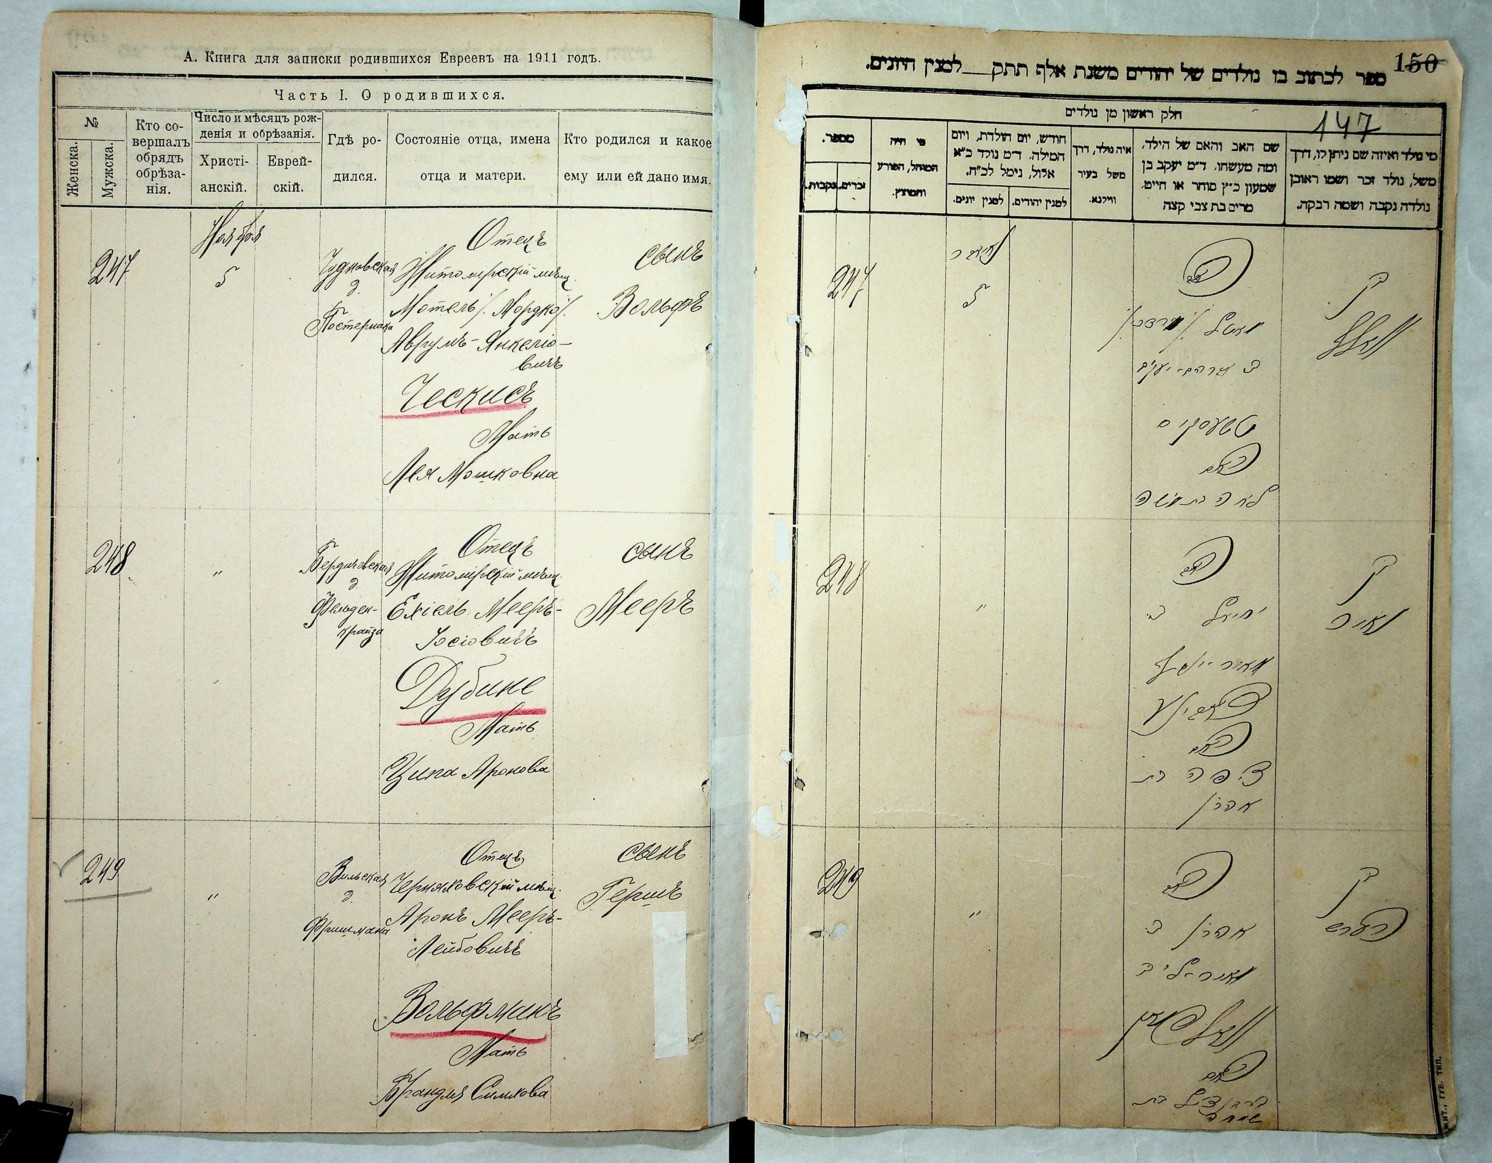 А. Книга для записки родившихся Евреевъ на 1911 годъ.
Часть I. О родившихся.
№
Женска.
Мужска.
Кто со-
вершалъ
обрядъ
обрѣза-
нія.
Число и мѣсяцъ рож-
денія и обрѣзанія.
Христі-
анскій.
Еврей-
скій.
Гдѣ ро-
дился.
Состояніе отца, имена
отца и матери.
Кто родился и какое
ему или ей дано имя.
Ноября
247
5
Чудновская
д.
Отецъ
Житомірскій мѣщ.
Мотель /. Мордко /.
Аврумъ-Янкело-
вичъ
Ческисъ
Мать
Лея Мошковна
сынъ
Вольфъ
248
"
Бердичевская
д.
Фельден-
крайза
Отецъ
Житомірскій мѣщ.
Ехіель Мееръ-
Іосіовичъ
Мать
Ципа Аронова
сынъ
Мееръ
249
"
Вильская
д.
Фришмана
Отецъ
Черняховскій мѣщ.
Аронъ Мееръ-
Лейбовичъ
Мать
сынъ
Гершъ
150
ספר לכתוב בו נולדים של יהודים משנת אלף תתק__למנין היונים.
147
חלק ראשון מן נולדים
מספר.
נקבות.
זכרים.
מי היה
המוהל, הפורע
והמוצץ.
חודש, יום הולדת, ויום
המילה. ד״מ נולד כ״א
אלול, נימל לכ״ח.
למנין יונים.
למנין יהודים.
איה נולד, דרך
משל בעיר
ווילנא.
שם האב והאם של הילד,
ומה מעשהו. ד״מ יעקב בן
שמעון כ״ץ סוחר או חייט.
מרים בת צבי קצה
מי נולד ואיזה שם ניתן לו, דרך
משל, נולד זכר ושמו ראובן
נולדה נקבה ושמה רבקה.
247
5
האב
מאטל /. מרדכי /.
ב אברהם-יעקב
טשעסקיס
האם
לאה בת משה
בן
וואלף
248
"
האב
יחיאל ב
מאיר-יוסף
האם
ציפה בת
אהרן
בן
מאיר
249
"
האב
אהרן ב
מאיר-ליב
האם
בן
הערש